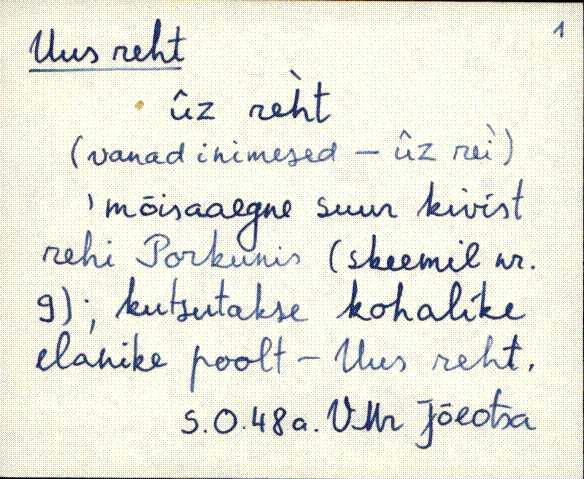 1
Uus reht
ûz reh̀t
(vanad inimesed – ûz rei̇̀)
'mõisaaegne suur kivist
rehi Porkunis (skeemil nr.
9); kutsutakse kohalike
elanike poolt – Uus reht.
S.O. 48 a. VMr Jõeotsa